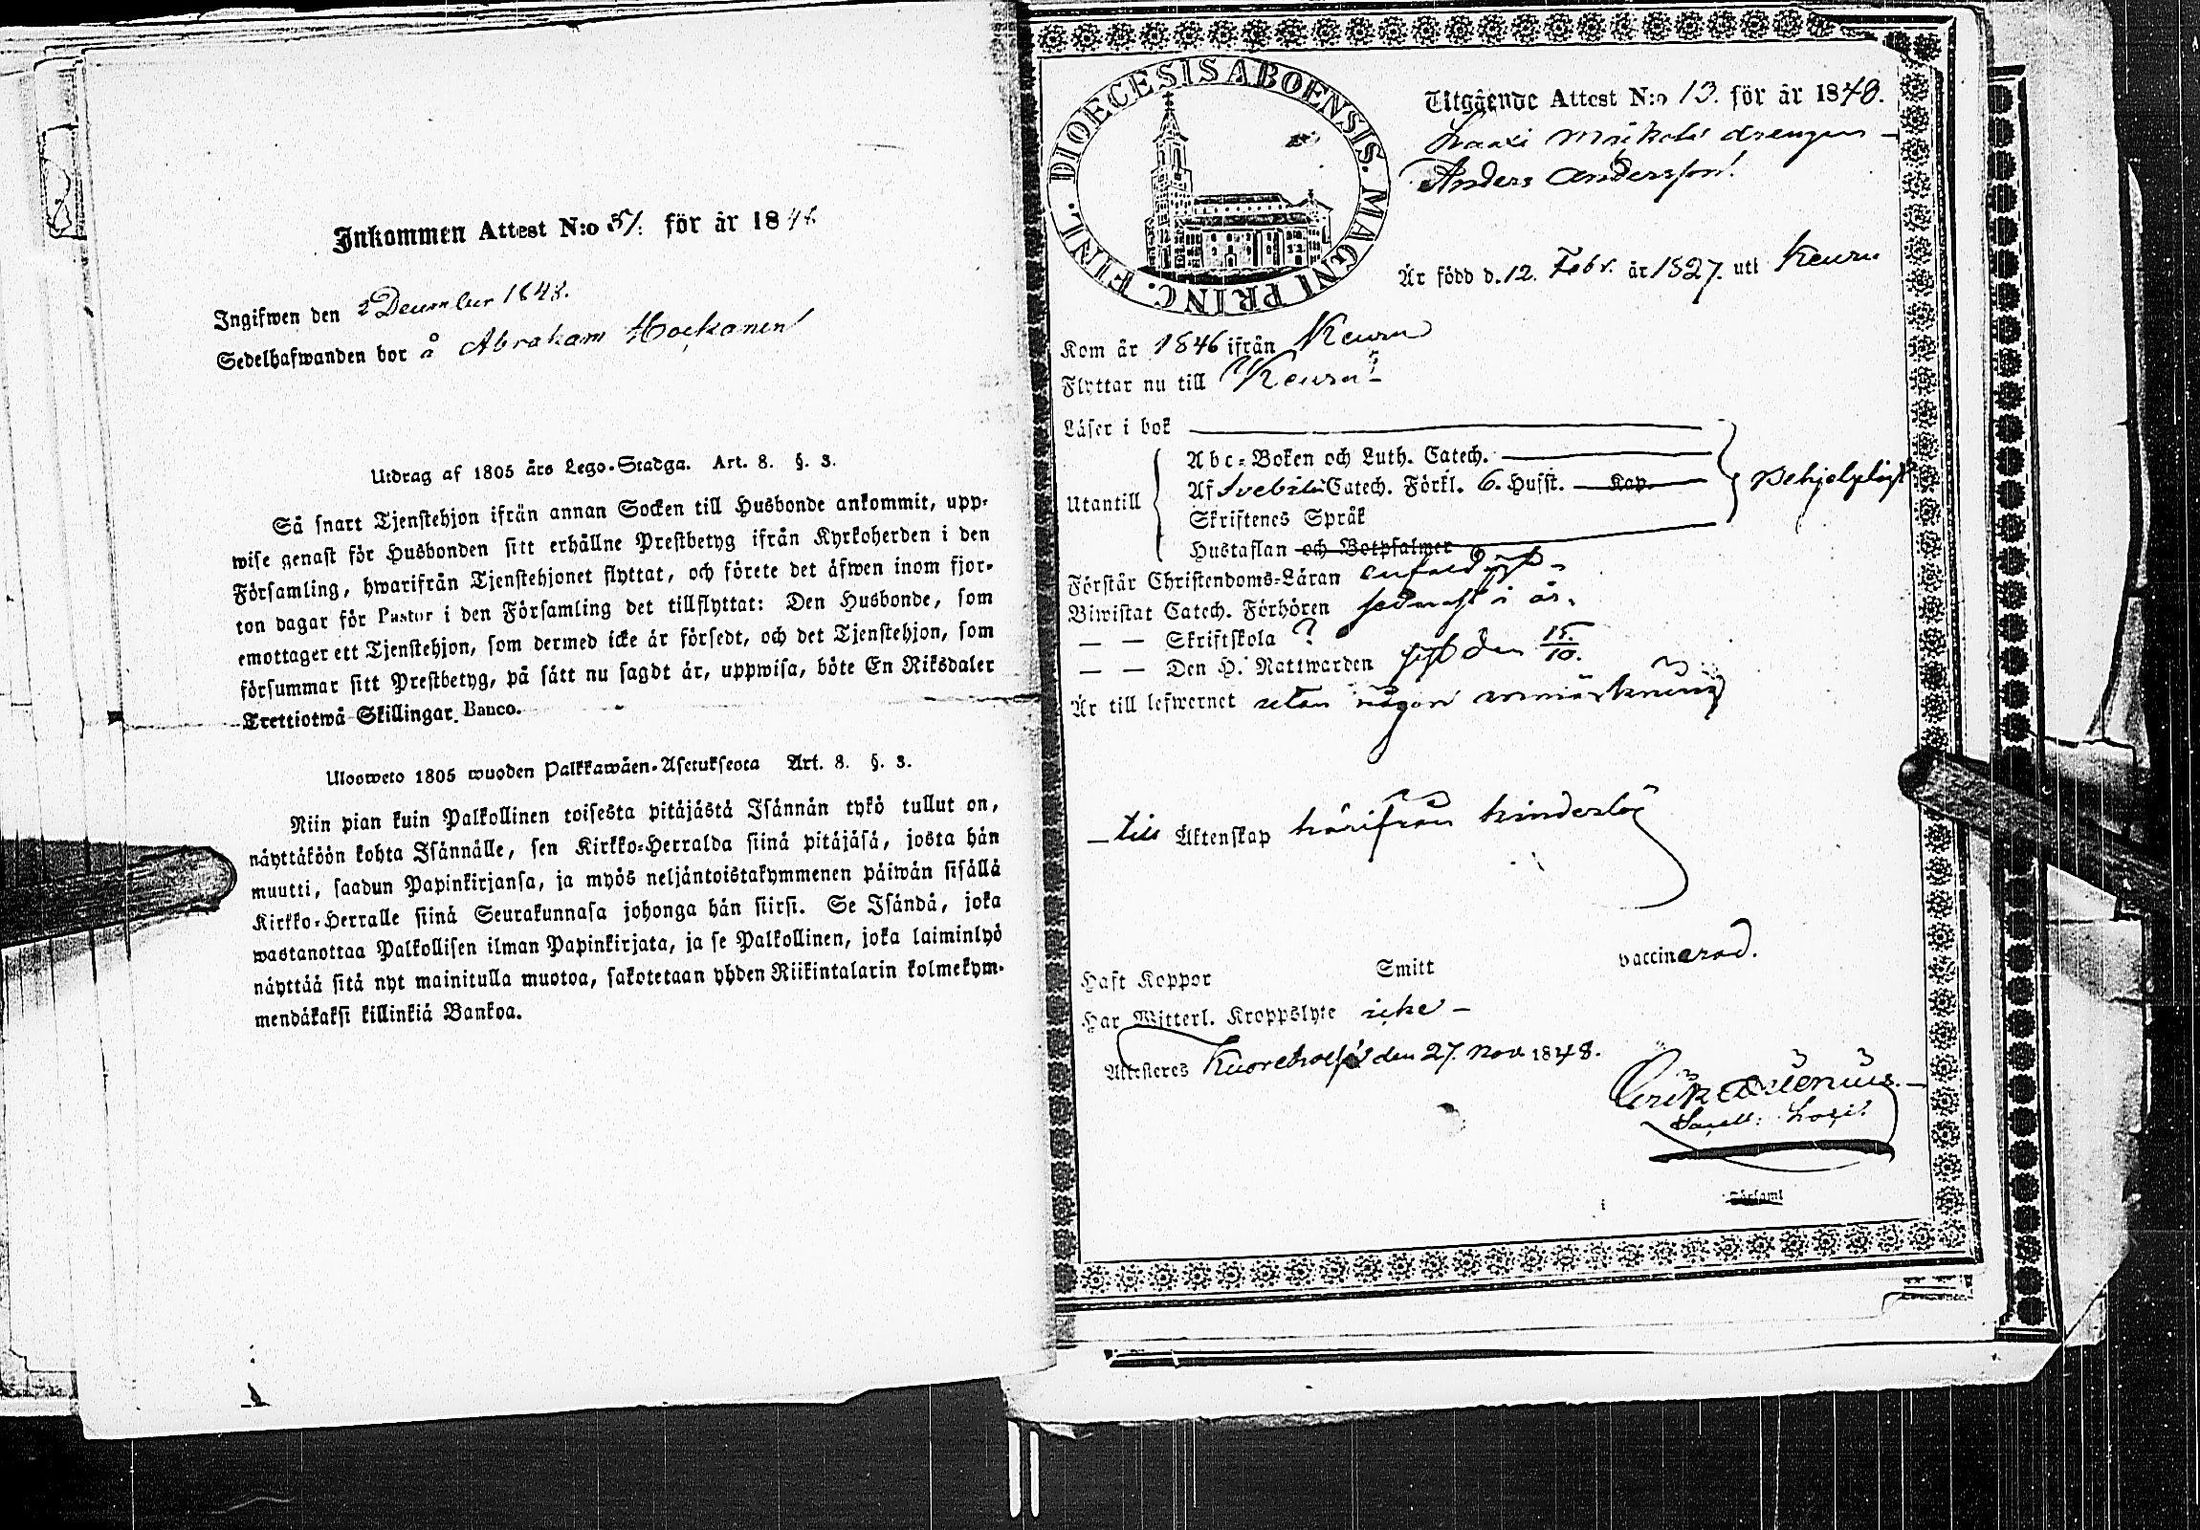 Inkommen Attest N:o 51. för år 1848
Ingifwen den 2 December 1848.
Sedelhafwanden bor å Abraham Hoskanen
Utdrag af 1805 års Lego-Stadga. Art. 8. §. 3.
Så snart Tjenstehjon ifrån annan Socken till Husbonde ankommit, upp-
wise genast för Husbonden sitt erhållne Prestbetyg ifrån Kyrkoherden i den
Församling, hwarifrån Tjenstehjonet flyttat, och förete det äfwen inom fjor-
ton dagar för Pastor i den Församling det tillflyttat: Den Husbonde, som
emottager ett Tjenstehjon, som dermed icke är försedt, och det Tjenstehjon, som
försummar sitt Prestbetyg, på sätt nu sagdt är, uppwisa, böte En Riksdaler
Trettiotwå Skillingar Banco.
Uloosweto 1805 wuoden Palkkawäen-Asetuksesta Art. 8. §. 3.
Niin pian kuin Palkollinen toisesta pitäjästä Isännän tykö tullut on,
näyttäköön kohta Isännälle, sen Kirkko-Herralda siinä pitäjäsä, josta hän
muutti, saadun Papinkirjansa, ja myös neljäntoistakymmenen päiwän sisällä
Kirkko-Herralle siinä Seurakunnasa johonga hän siirsi. Se Isändä, joka
wastanottaa Palkollisen ilman Papinkirjata, ja se Palkollinen, joka laiminlyö
näyttää sitä nyt mainitulla muotoa, sakotetaan yhden Riikintalarin kolmekym-
mendäkaksi killinkiä Bankoa.
DIOECESIS ABOENSIS. MAGNI PRINC. FINL.
Utgående Attest N:o 13. för år 1848.
drengen
Anders Andersson
Är född d. 12. Febr. år 1827. uti Keuru
Kom år 1846 ifrån Keuru
Flyttar nu till Keuru
Läser i bok
Utantill
Abc-Boken och Luth. Catech.
Af Svebilii Catech. Förkl. 6. Hufst. Kap.
Skriftenes Språk
Hustaflan och Botpsalmer
Behjelpligt
Förstår Christendoms-Läran enfaldigt
Biwistat Catech. Förhören sednast i år.
— — Skriftskola ?
— — Den H. Nattwarden sist den 15/10.
Är till lefwernet utan någon anmärkning
— till Äktenskap härifrån hinderlös
Haft Koppor Smitt vaccinerad.
Har Witterl. Kroppslyte icke —
Attesteres den 27. Nov. 1848.
i Församl